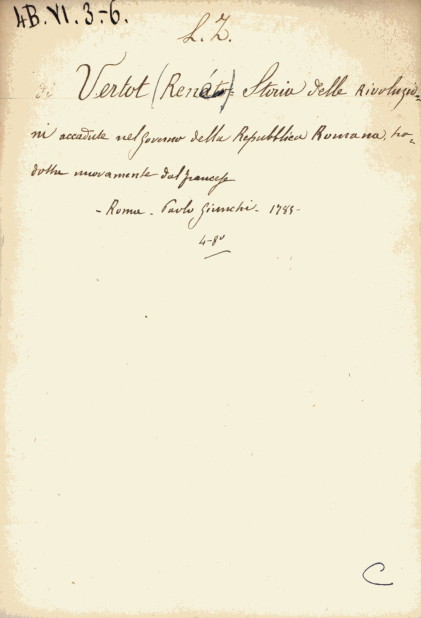 4B.VI.3-6.
L.Z.
di Vertot (Renato) = Storia delle Rivoluzio=
ni accadute nel Governo della Repubblica Romana, tra=
dotta nuovamente dal francese
- Roma - Paolo Giunchi - 1785 -
4-8º
C